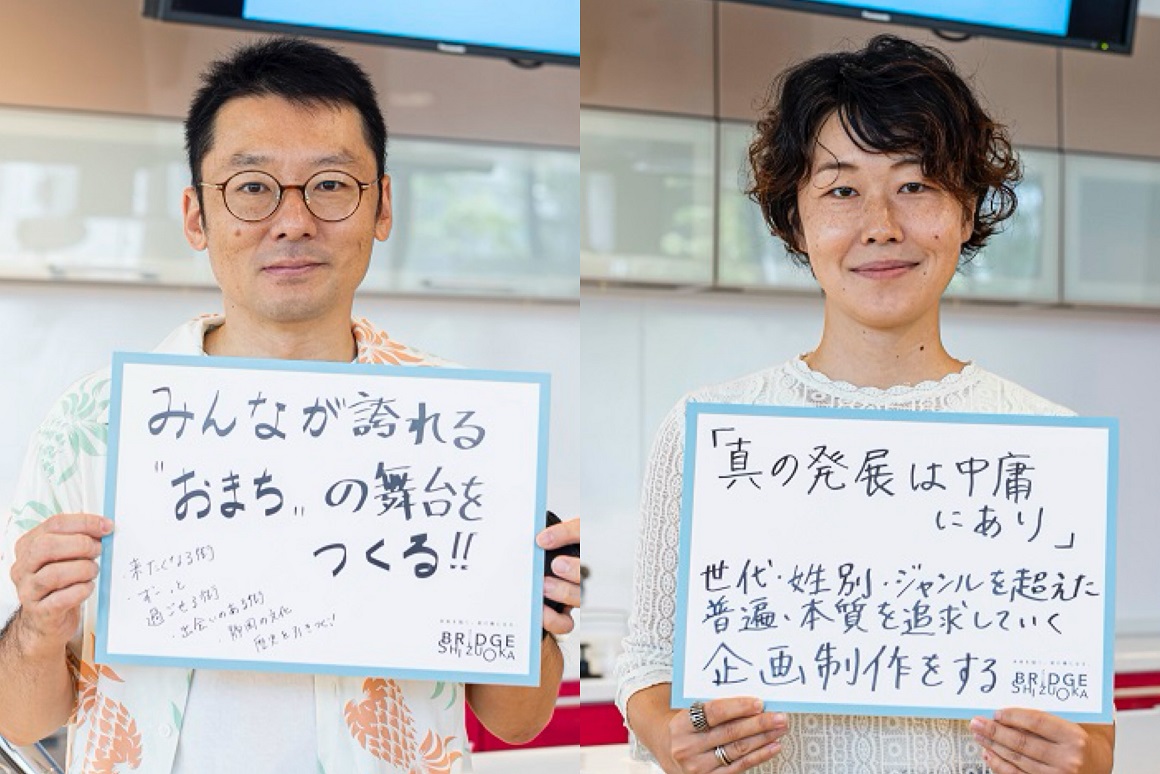 みんなが誇れる
"おまち"の舞台を
つくる!!
・来たくなる街
・ずーっと
過ごせる街
・出会いのある街
静岡の文化
歴史を
BRIDGE
SHIZUOKA
「真の発展は中庸
にあり」
世代・姓別・ジャンルを超えた
普遍・本質を追求していく
企画制作をする
BRIDGE
SHIZUOKA